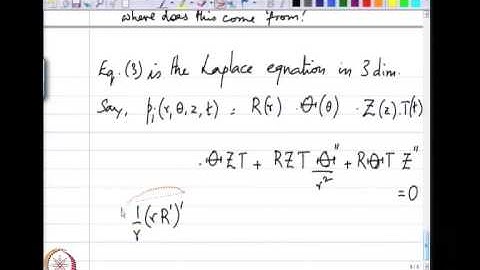 where does this come from?
Eq. (3) is the Laplace equation in 3 dim.
Say, p₁(r, θ, z, t) = R(r) · Θ(θ) · Z(z) · T(t)
· Θ Z T + R Z T Θ''/r² + R Θ T Z'' = 0
1/r (r R')'